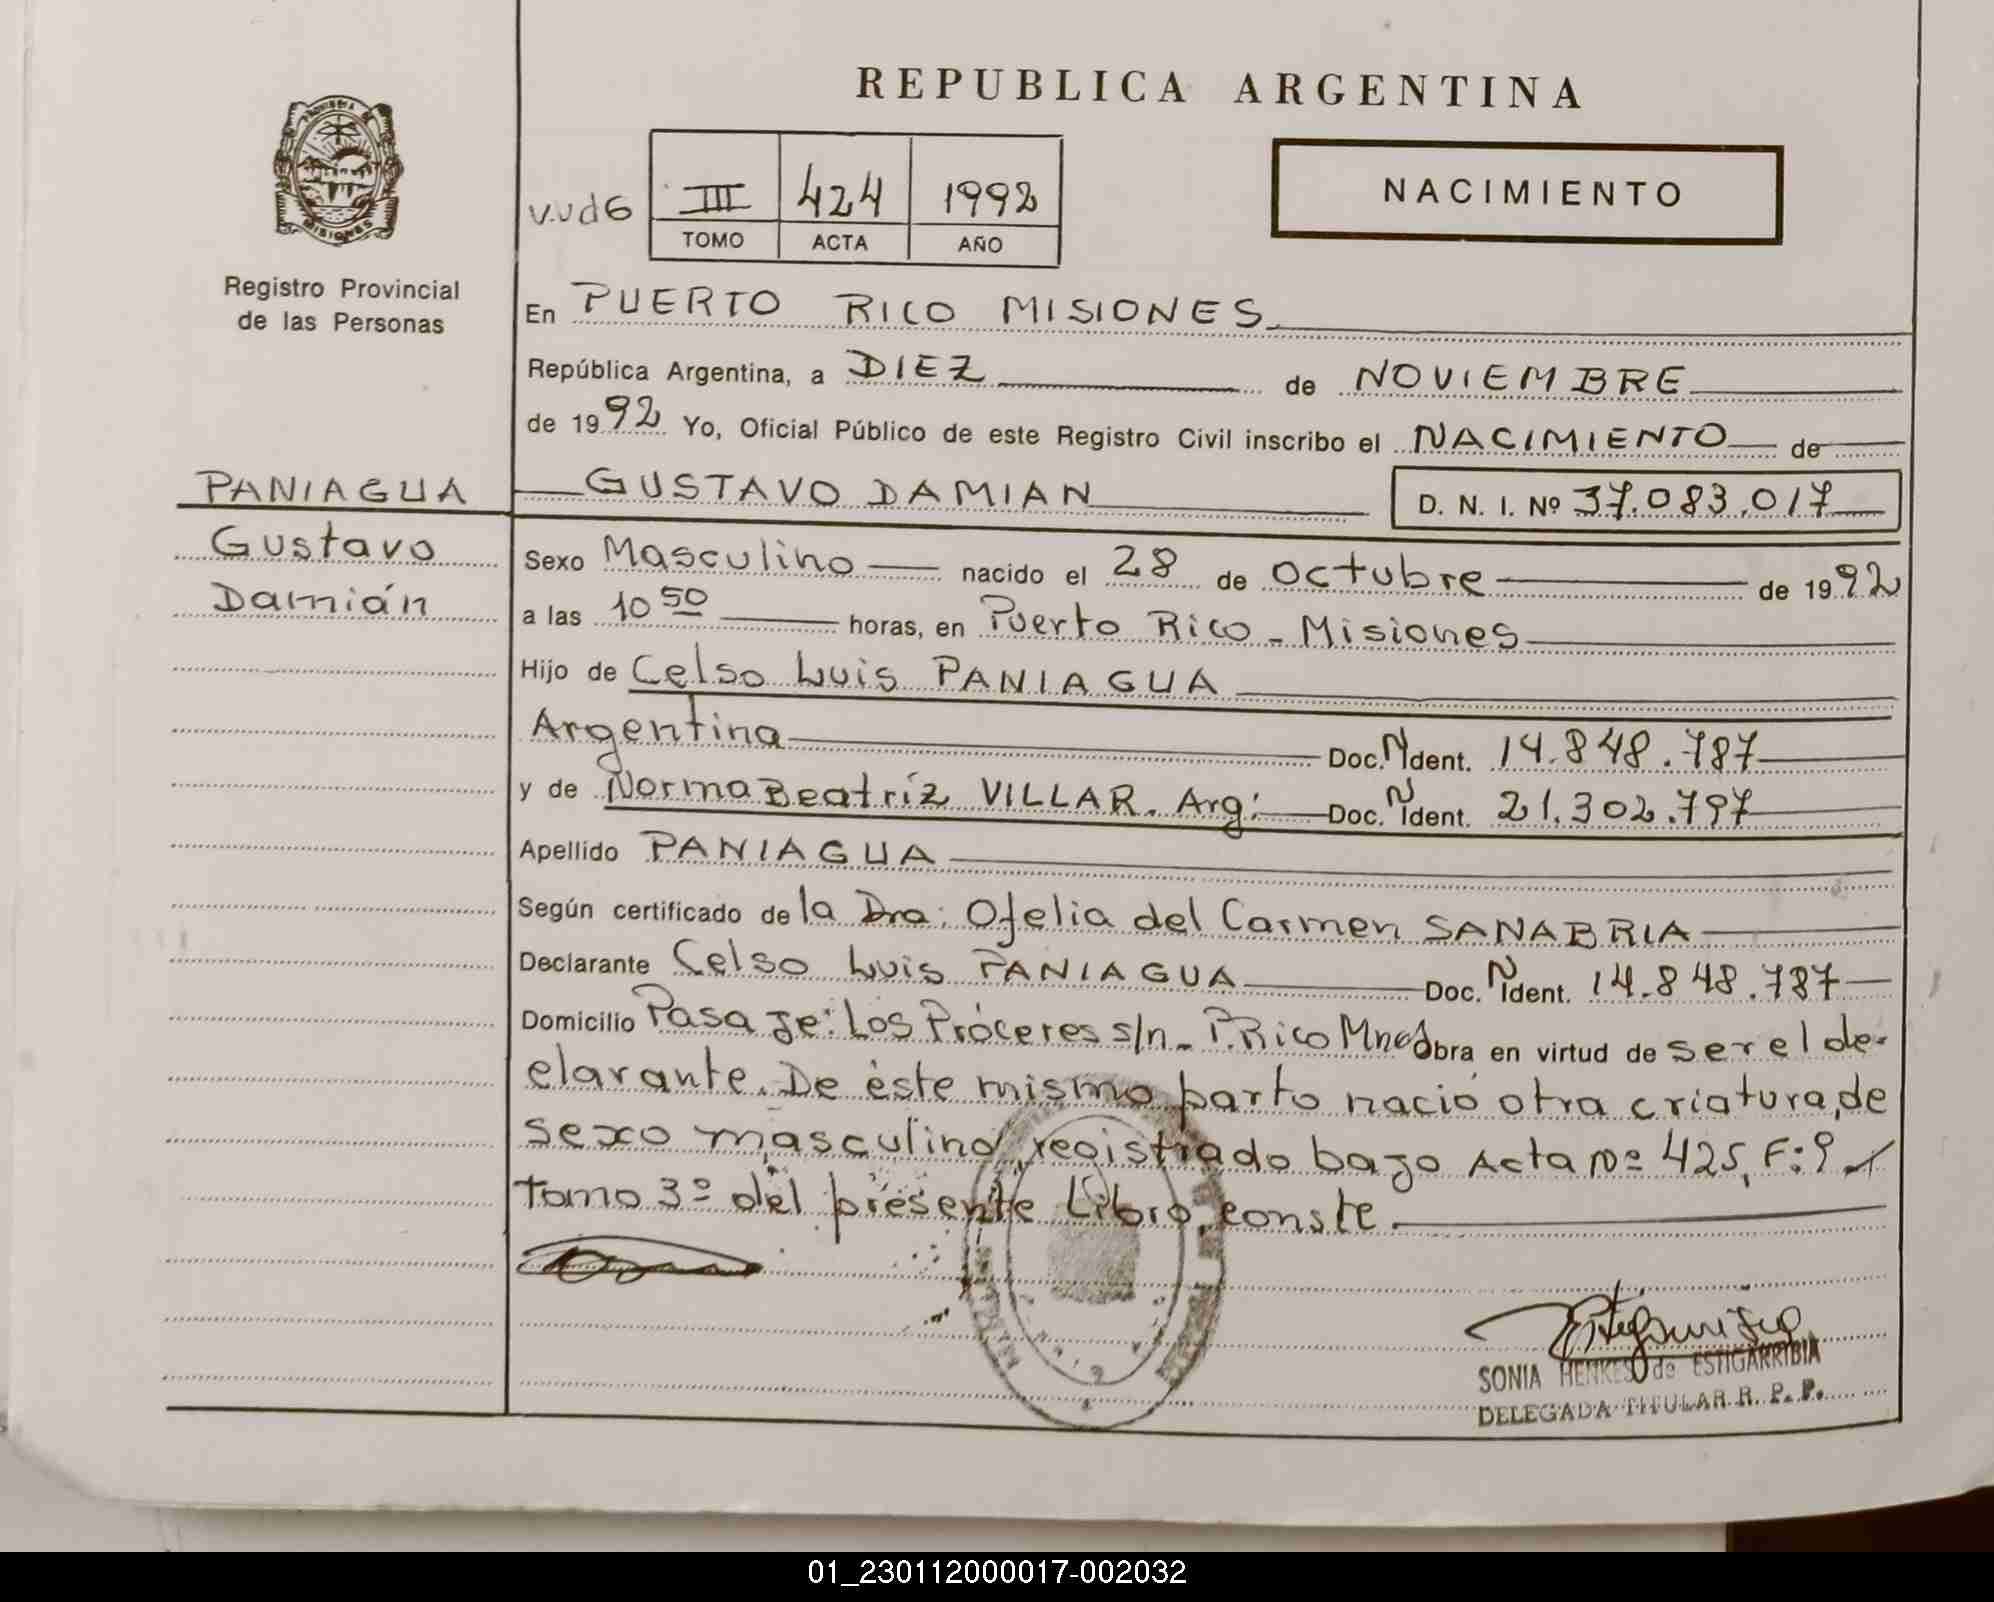 REPUBLICA ARGENTINA
PROVINCIA DE
MISIONES
Registro Provincial
de las Personas
v.vd6
III 424 1992
TOMO ACTA AÑO
NACIMIENTO
En PUERTO RICO MISIONES
República Argentina, a DIEZ de NOVIEMBRE
de 1992 Yo, Oficial Público de este Registro Civil inscribo el NACIMIENTO de
PANIAGUA GUSTAVO DAMIAN D. N. I. Nº 37.083.017
Gustavo
Damián
Sexo Masculino nacido el 28 de Octubre de 1992
a las 10 50 horas, en Puerto Rico - Misiones
Hijo de Celso Luis PANIAGUA
Argentina Doc. N Ident. 14.848.787
y de Norma Beatríz VILLAR. Arg: Doc. N Ident. 21.302.797
Apellido PANIAGUA
Según certificado de la Dra: Ofelia del Carmen SANABRIA
Declarante Celso Luis PANIAGUA Doc. N Ident. 14.848.787
Domicilio Pasaje: Los Próceres s/n - P. Rico Mnes Obra en virtud de ser el de-
clarante. De éste mismo parto nació otra criatura, de
sexo masculino, registrado bajo Acta Nº 425, F: 9
tomo 3º del presente Libro, conste
SONIA HENKES de ESTIGARRIBIA
DELEGADA TITULAR R. P. P.
01_230112000017-002032